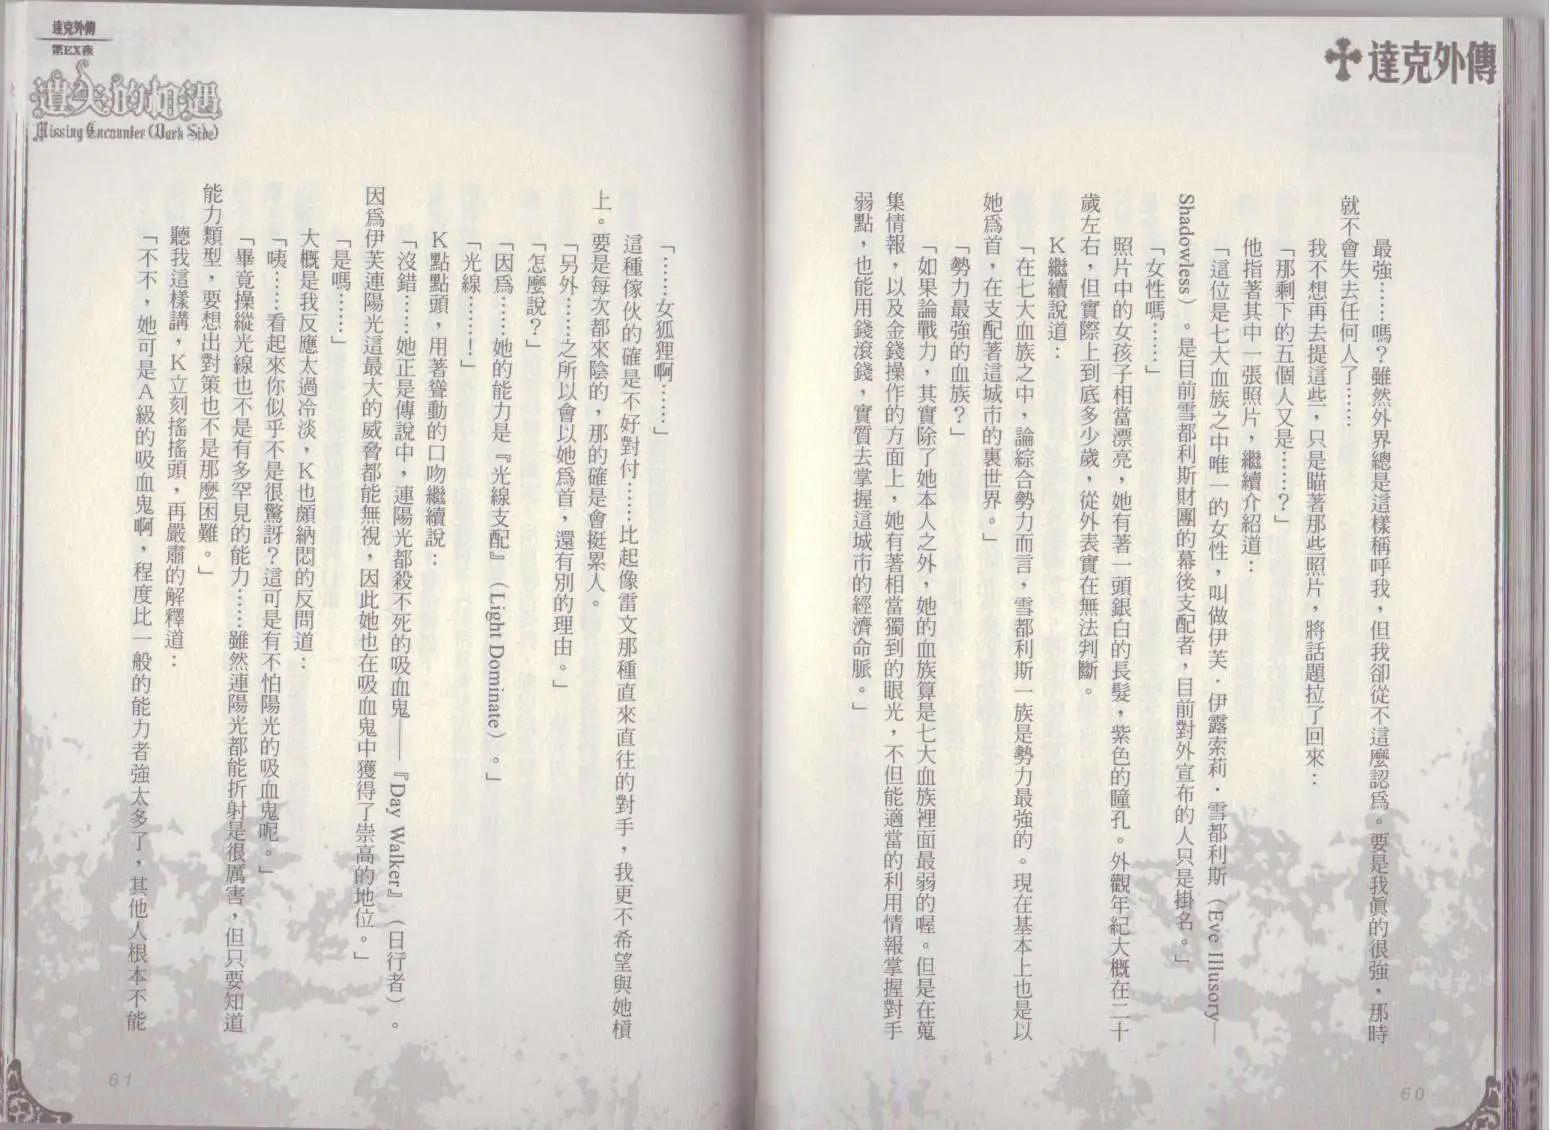 達克外傳
最強……嗎？雖然外界總是這樣稱呼我，但我卻從不這麼認爲。要是我眞的很強，那時
就不會失去任何人了……
我不想再去提這些，只是瞄著那些照片，將話題拉了回來：
「那剩下的五個人又是……？」
他指著其中一張照片，繼續介紹道：
「這位是七大血族之中唯一的女性，叫做伊芙．伊露索莉．雪都利斯（Eve Illusory—
Shadowless）。是目前雪都利斯財團的幕後支配者，目前對外宣布的人只是掛名。」
「女性嗎……」
照片中的女孩子相當漂亮，她有著一頭銀白的長髮，紫色的瞳孔。外觀年紀大概在二十
歲左右，但實際上到底多少歲，從外表實在無法判斷。
K繼續說道：
「在七大血族之中，論綜合勢力而言，雪都利斯一族是勢力最強的。現在基本上也是以
她爲首，在支配著這城市的裏世界。」
「勢力最強的血族？」
「如果論戰力，其實除了她本人之外，她的血族算是七大血族裡面最弱的喔。但是在蒐
集情報，以及金錢操作的方面上，她有著相當獨到的眼光，不但能適當的利用情報掌握對手
弱點，也能用錢滾錢，實質去掌握這城市的經濟命脈。」
60
達克外傳
第EX夜
遺失的相遇
Missing Encounter (Dark Side)
「……女狐狸啊……」
這種傢伙的確是不好對付……比起像雷文那種直來直往的對手，我更不希望與她槓
上。要是每次都來陰的，那的確是會挺累人。
「另外……之所以會以她爲首，還有別的理由。」
「怎麼說？」
「因爲……她的能力是『光線支配』（Light Dominate）。」
「光線……！」
K點點頭，用著聳動的口吻繼續說：
「沒錯……她正是傳說中，連陽光都殺不死的吸血鬼——『Day Walker』（日行者）。
因爲伊芙連陽光這最大的威脅都能無視，因此她也在吸血鬼中獲得了崇高的地位。」
「是嗎……」
大概是我反應太過冷淡，K也頗納悶的反問道：
「咦……看起來你似乎不是很驚訝？這可是有不怕陽光的吸血鬼呢。」
「畢竟操縱光線也不是有多罕見的能力……雖然連陽光都能折射是很厲害，但只要知道
能力類型，要想出對策也不是那麼困難。」
聽我這樣講，K立刻搖搖頭，再嚴肅的解釋道：
「不不，她可是A級的吸血鬼啊，程度比一般的能力者強太多了，其他人根本不能
61